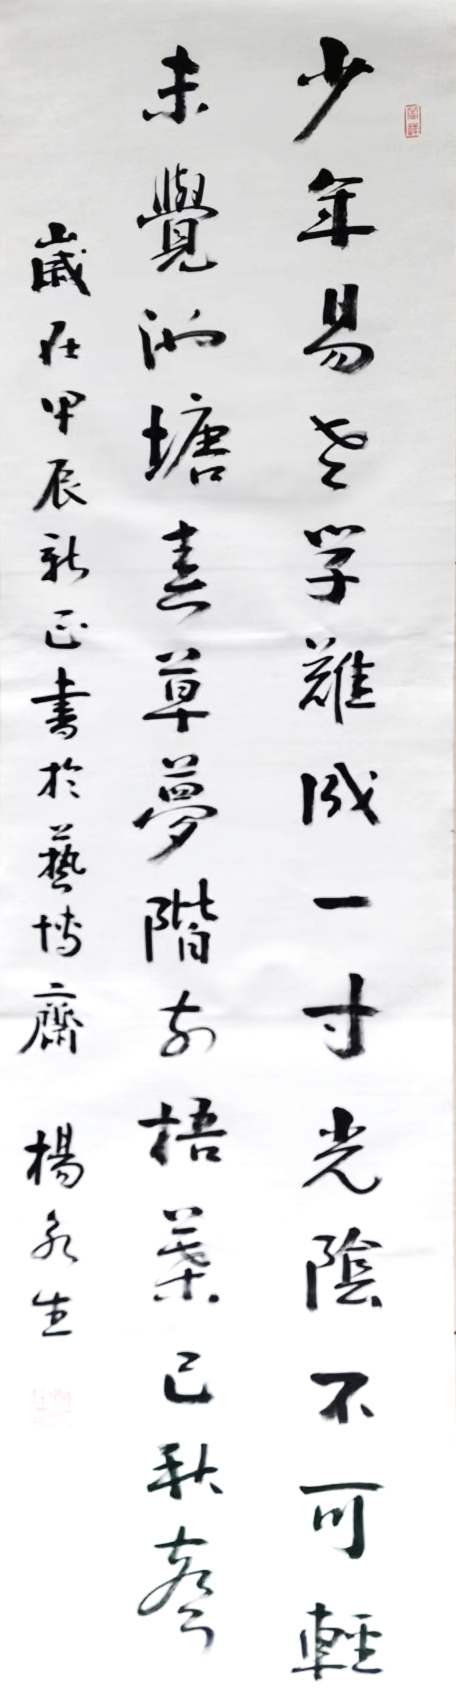 少年易老学難成一寸光陰不可輕
未覺池塘春草夢階前梧葉已秋聲
歲在甲辰新正書於藝博齋 楊永生